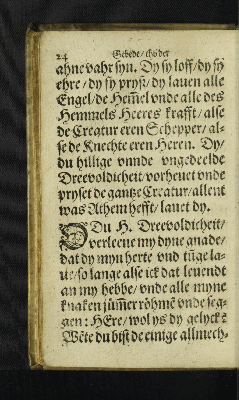 24 Gebede / tho der
ahne vahr syn. Dy sy loff / dy sy
ehre / dy sy prysz / dy lauen alle
Engel / de Hem̃el vnde alle des
Hemmels Heeres krafft / alse
de Creatur eren Schepper / al-
se de Knechte eren Heren. Dy /
du hillige vnnde vngedeelde
Dreevoldicheit / vorheuet vnde
pryset de gantze Creatur / allent
was Athem hefft / lauet dy.
O Du H. Dreevoldicheit /
verleene my dyne gnade /
dat dy myn herte vnd tũge la-
ue / so lange alse ick dat leuendt
an my hebbe / vnde alle myne
knaken jũm̃er röhmẽ vnde seg-
gen : HEre / wol ys dy gelyck?
Wẽte du bist de einige allmech-